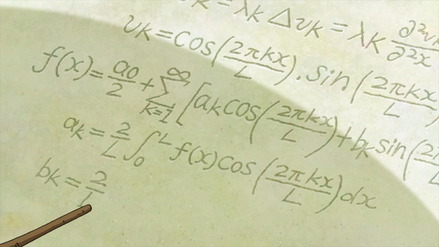 υk = λk Δυk = λk ∂²υk/∂²x
υk = cos(2πkx/L), sin(2πkx/L)
f(x) = a0/2 + ∞∑k=1 [ak cos(2πkx/L) + bk sin(2πkx/L)
ak = 2/L ∫0L f(x) cos(2πkx/L) dx
bk = 2/